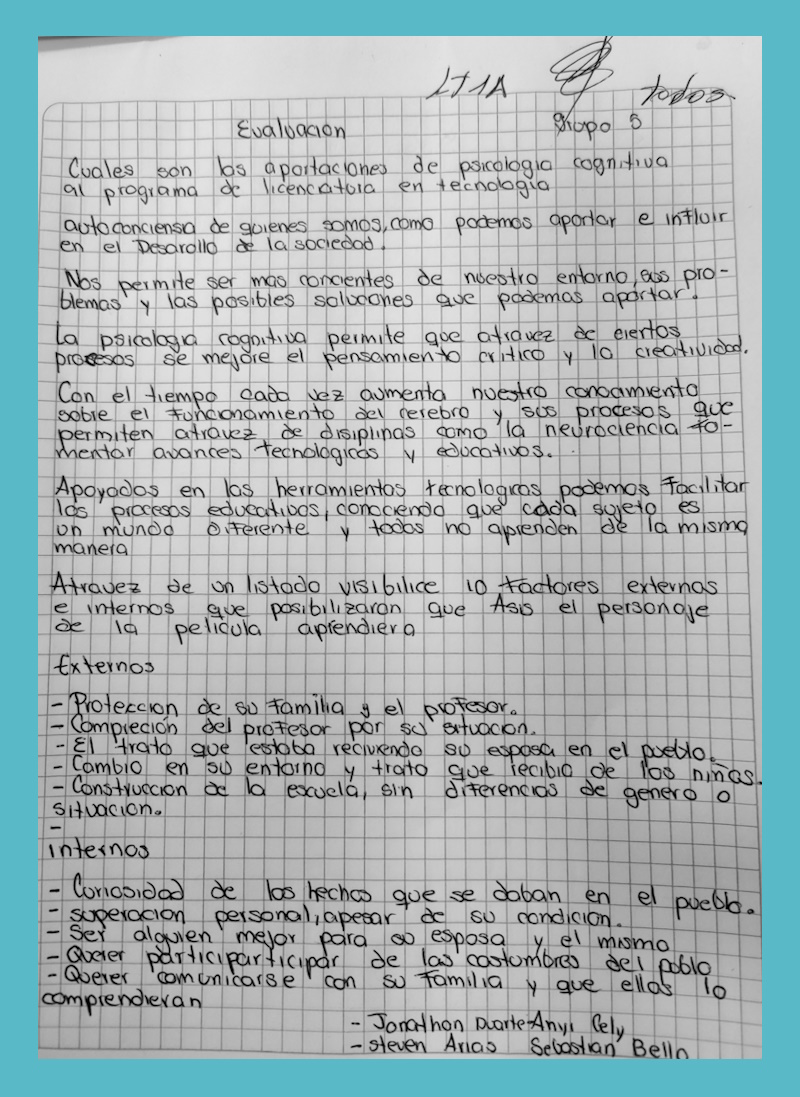 LT1A todos.
Evaluacion Grupo 5
Cuales son las aportaciones de psicologia cognitiva
al programa de licenciatura en tecnologia
autoconciensa de quienes somos, como podemos aportar e influir
en el Desarollo de la sociedad.
Nos permite ser mas concientes de nuestro entorno, sus pro-
blemas y las posibles soluciones que podemos aportar.
La psicologia cognitiva permite que atravez de ciertos
procesos se mejore el pensamiento critico y la creatividad.
Con el tiempo cada vez aumenta nuestro conocamiento
sobre el funcionamiento del cerebro y sus procesos que
permiten atravez de disiplinas como la neurociencia fo-
mentar avances tecnologicos y educativos.
Apoyados en las herramientos tecnologicos podemos facilitar
los procesos educativos, conociendo que cada sujeto es
un mundo diferente y todos no aprenden de la misma
manera
Atravez de un listado visibilice 10 factores externos
e internos que posibilizaron que Asis el personaje
de la pelicula aprendiera
Externos
- Proteccion de su familia y el profesor.
- Compreción del profesor por su situacion.
- El trato que estaba reciviendo su esposa en el pueblo.
- Cambio en su entorno y trato que recibio de los niñas.
- Construccion de la escuela, sin diferencias de genero o
situacion.
-
internos
- Curiosidad de los hechos que se daban en el pueblo.
- superacion personal, apesar de su condicion.
- Ser alguien mejor para su esposa y el mismo
- Querer participarticipar de las costumbres del poblo
- Querer comunicarse con su familia y que ellos lo
comprendieran
- Jonathon Duarte - Anyi Cely
- steven Arias Sebastian Bello